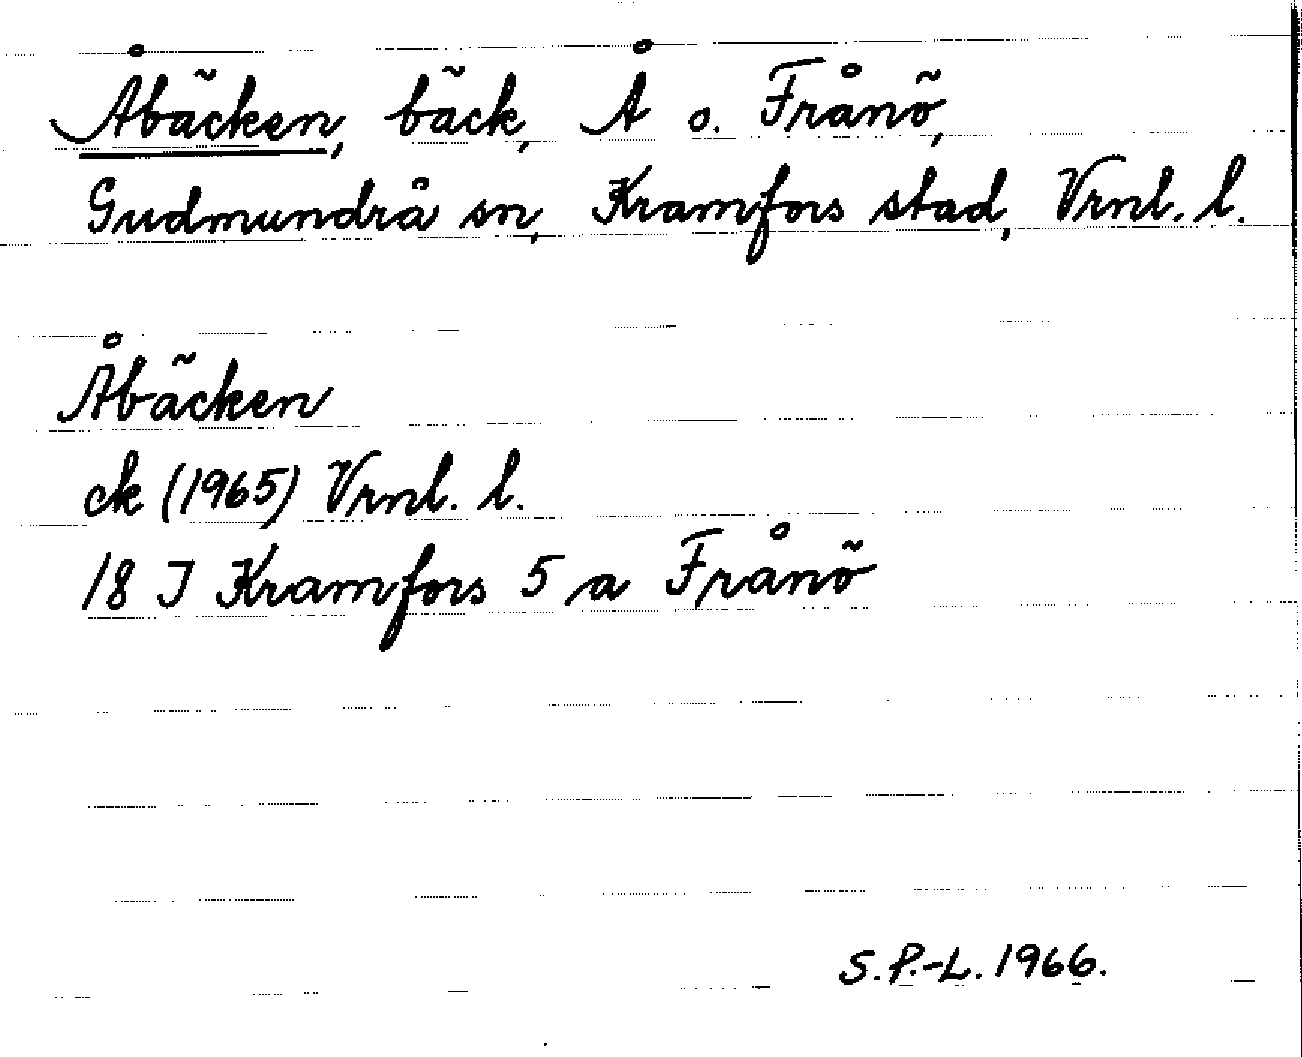 Åbäcken, bäck, Å o. Frånö,
Gudmundrå sn, Kramfors stad, Vrnl. l.
Åbäcken
ek (1965) Vrnl. l.
18 I Kramfors 5 a Frånö
S.P.-L. 1966.